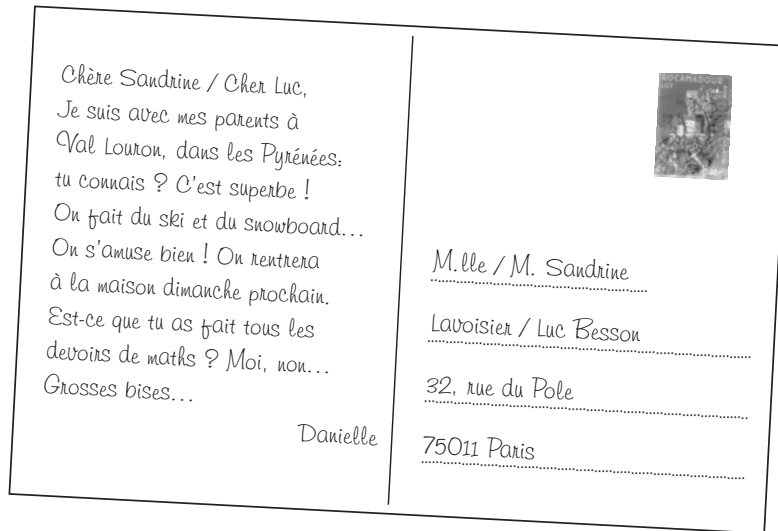 Chère Sandrine / Cher Luc,
Je suis avec mes parents à
Val Louron, dans les Pyrénées:
tu connais ? C'est superbe !
On fait du ski et du snowboard...
On s'amuse bien ! On rentrera
à la maison dimanche prochain.
Est-ce que tu as fait tous les
devoirs de maths ? Moi, non...
Grosses bises...
Danielle
ROCAMADOUR
LOT
M.lle / M. Sandrine
Lavoisier / Luc Besson
32, rue du Pole
75011 Paris